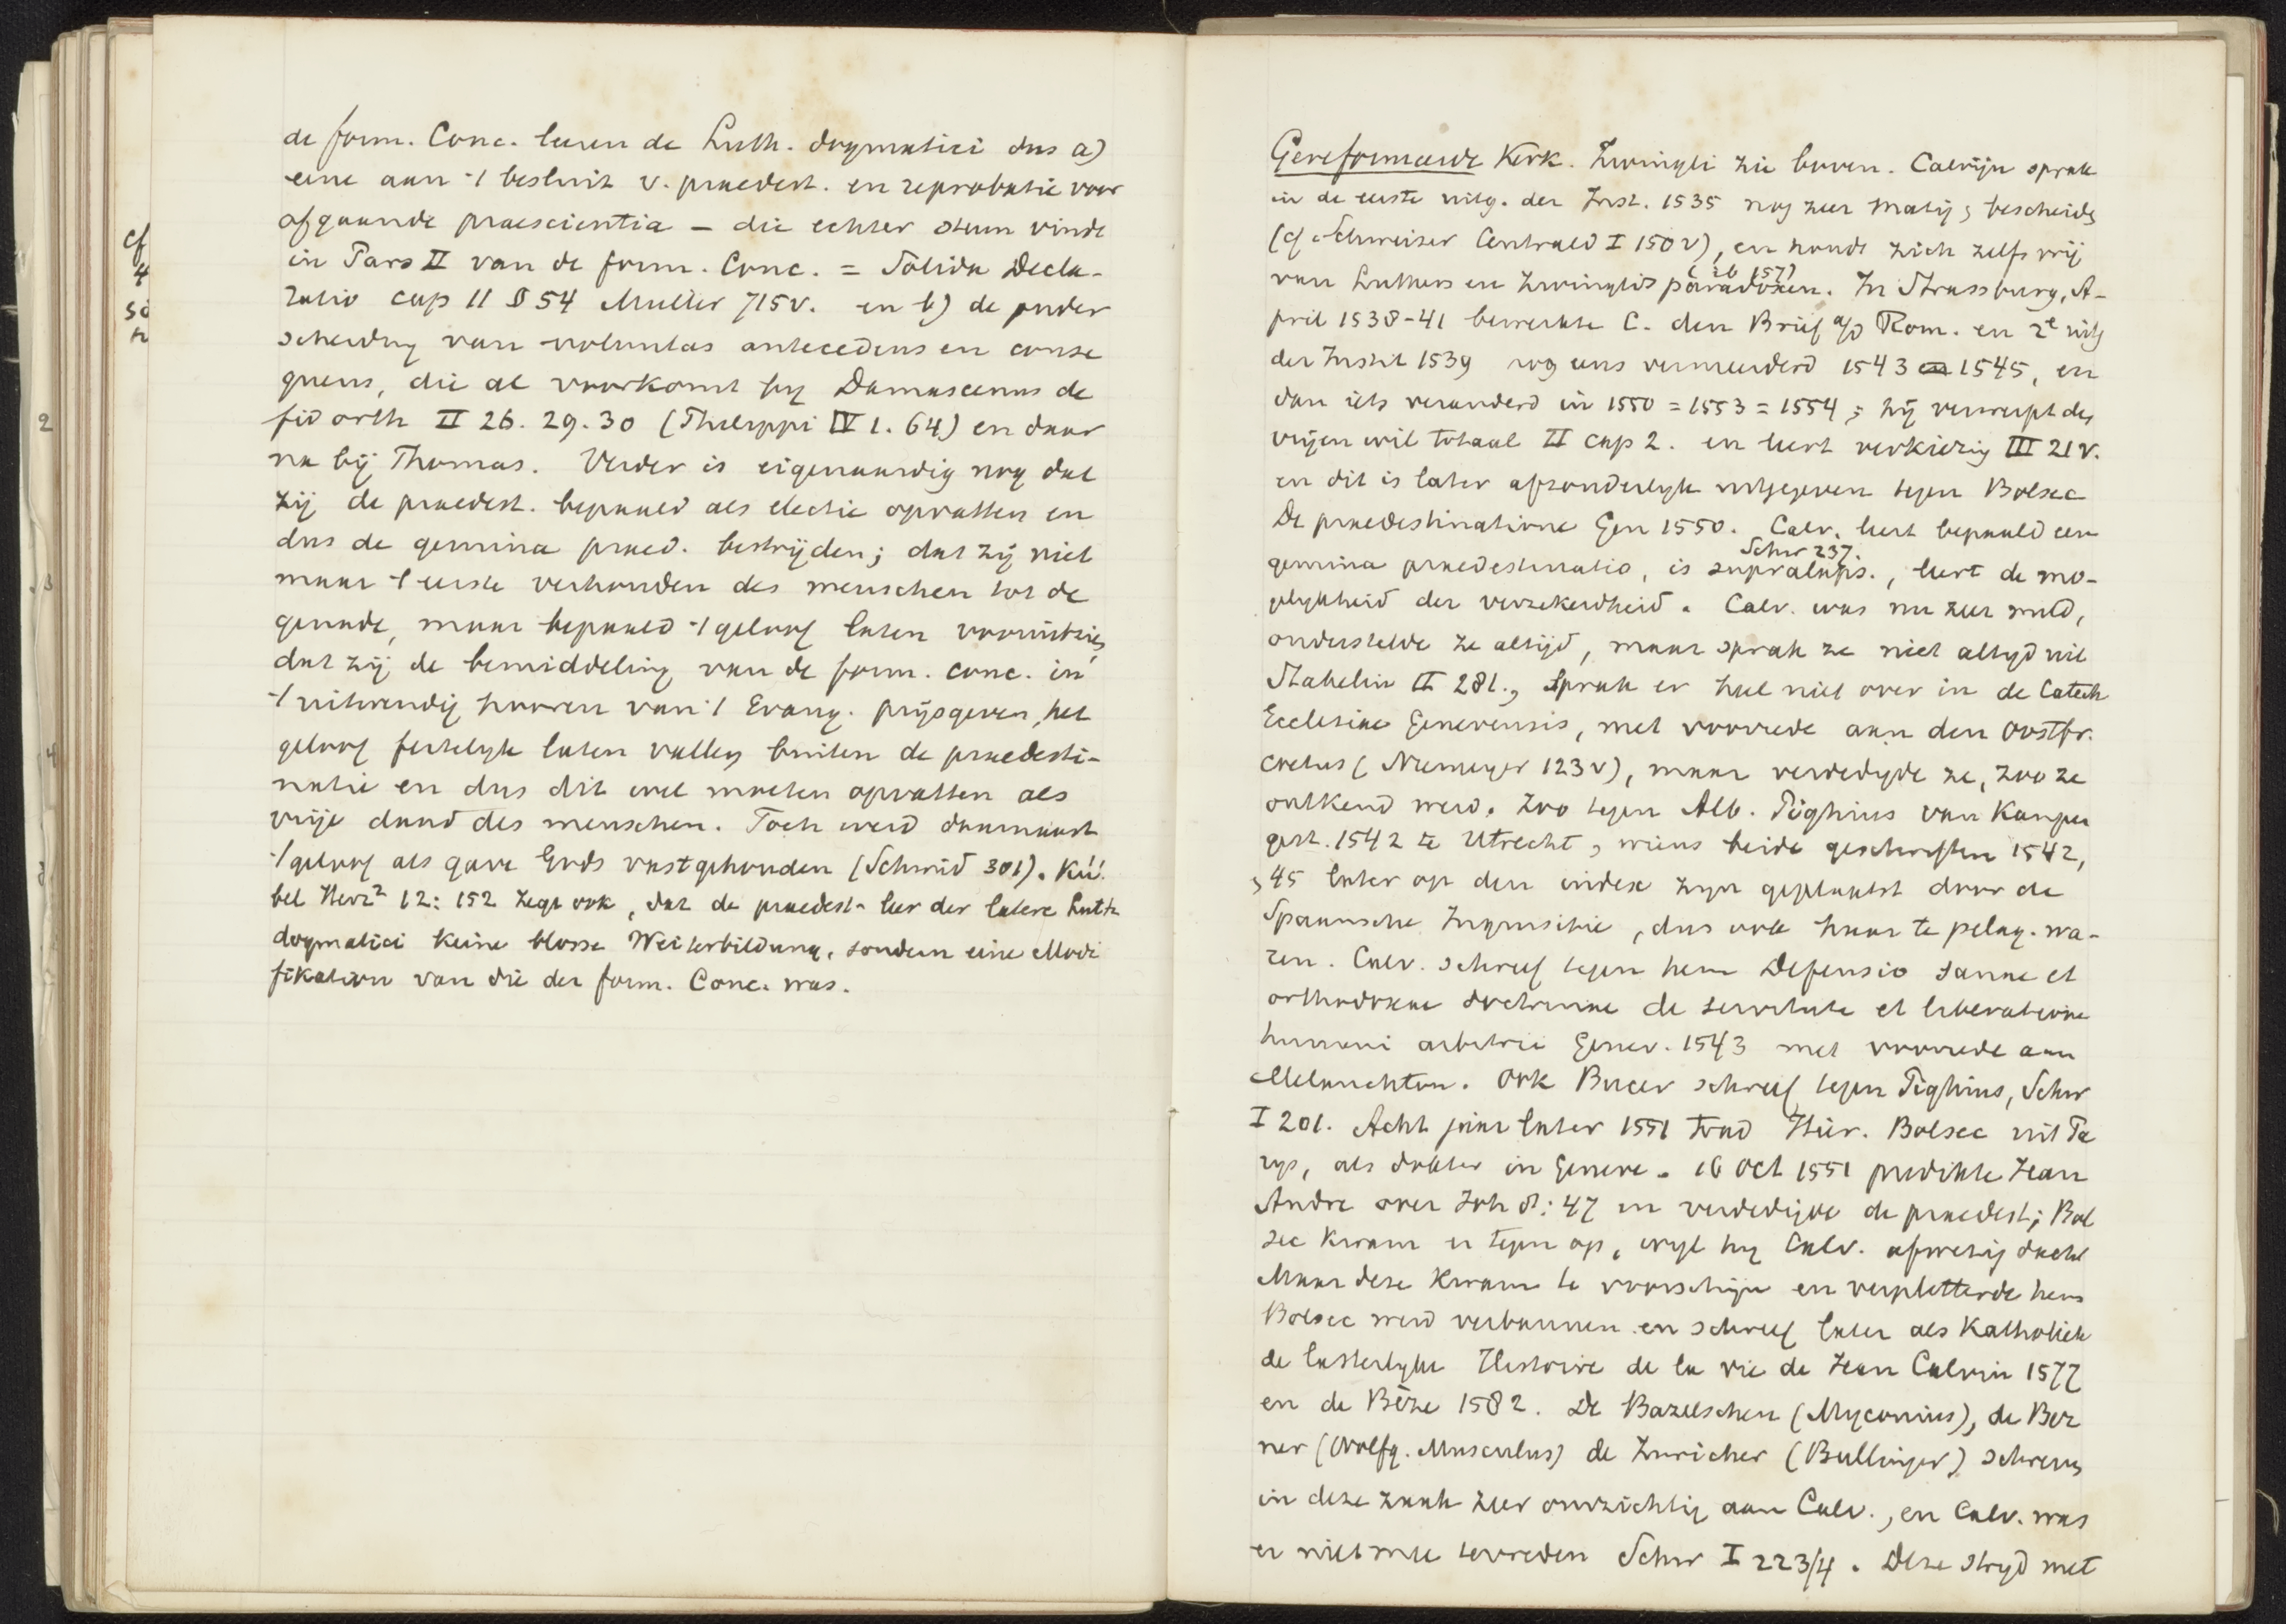 de form. Conc. leeren de Luth. dogmatici dus a)
eene aan 't besluit v. praedest. en reprobatie voor
afgaande praescientia – die echter steun vindt
in Pars II van de form. Conc. = Solida Decla-
ratio cap 11 § 54 Muller 715v. en b) de onder
scheiding van voluntas antecedens en conse
quens, die al voorkomt bij Damascenus de
fid orth II 26. 29. 30 (Philippi IV 1. 64) en daar
na bij Thomas. Verder is eigenaardig nog dat
zij de praedest. bepaald als electie opvatten en
dus de gemina praed. bestrijden; dat zij niet
maar 't eerste verhouden des menschen tot de
genade, maar bepaald 't geloof laten vooruitzien,
dat zij de bemiddeling van de form. conc. in
't uitwendig hooren van 't Evang. prijsgeven, het
geloof feitelijk laten vallen buiten de praedesti-
natie en dus dit wel moeten opvatten als
vrije daad des menschen. Toch werd daarnaast
't geloof als gave Gods vastgehouden (Schmid 301). Kü
bel Herz² 12: 152 zegt ook, dat de praedest-leer der latere Luth
dogmatici keine blosse Weiterbildung, sondern eine Modi
fikation van die der form. Conc. was.
cf
4
2
3
4
Gereformeerde Kerk. Zwingli zie boven. Calvijn sprak
in de eerste uitg. der Inst. 1535 nog zeer matig, bescheiden
(cf Schweizer Centrald I 150v), en houdt zich zelfs vrij
(ib 157)
van Luthers en Zwinglis paradoxen. In Strassburg, A-
pril 1538-41 bewerkte C. den Brief a/d Rom. en 2e uitg
der Instit 1539 nog eens vermeerderd 1543 en 1545, en
dan iets veranderd in 1550 = 1553 = 1554; hij verwerpt den
vrijen wil totaal II cap 2. en leert verkiezing III 21v.
en dit is later afzonderlijk uitgegeven tegen Bolsec
De praedestinatione Gen 1550. Calv. leert bepaald een
Schw 237.
gemina praedestinatio, is supralaps., leert de mo-
gelijkheid der verzekerdheid. Calv. was nu zeer mild,
onderstelde ze altijd, maar sprak ze niet altijd uit
Stahelin II 281., sprak er heel niet over in de Catech
Ecclesiae Genevensis, met voorrede aan den Oostfr.
coetus (Niemeyer 123v), maar verdedigde ze, zoo ze
ontkend werd. Zoo tegen Alb. Pighius van Kampen
gest. 1542 te Utrecht, wiens beide geschriften 1542,
45 later op den index zijn geplaatst door de
Spaansche Inquisitie, dus ook haar te pelag. wa-
ren. Calv. schreef tegen hem Defensio sanae et
orthodoxae doctrinae de servitute et liberatione
humani arbitrii Genev. 1543 met voorrede aan
Melanchton. Ook Bucer schreef tegen Pighius, Schw
I 201. Acht jaar later 1551 trad Hier. Bolsec uit Pa
rijs, als dokter in Geneve. 16 Oct 1551 predikte Jean
Andre over Joh 8:47 en verdedigde de praedest; Bol
sec kwam er tegen op, wijl hij Calv. afwezig dacht
Maar deze kwam te voorschijn en verpletterde hem
Bolsec werd verbannen en schreef later als Katholiek
de lasterlijke Histoire de la vie de Jean Calvin 1577
en de Bèze 1582. De Bazelschen (Myconius), de Ber
ner (Wolfg. Musculus) de Zuricher (Bullinger) schreven
in deze zaak zeer omzichtig aan Calv., en Calv. was
er niet mee tevreden Schw I 223/4. Deze strijd met